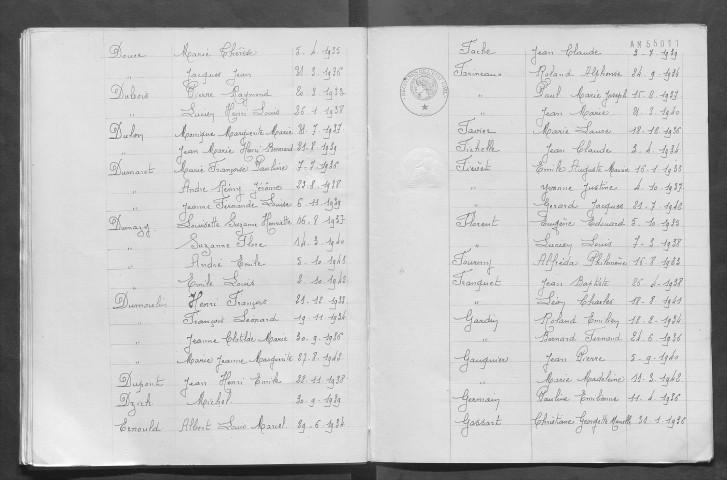 Douce Marie Thérèse 5.4.1935
" Jacques Jean 31.3.1936
Dubois Pierre Raymond
" Lucien Henri Louis 26.1.1938
Dulon Monique Marguerite Marie 31.7.1937
Jean Marie Henri Bernard 21.8.1939
Dumaret Marie Françoise Pauline 7.7.1936
" André Rémy Jérôme 23.8.1938
Jeanne Fernande Louise 6.11.1939
Dumazy Louisette Suzanne Henriette 16.8.1937
" Suzanne Flore 14.3.1940
" André Emile 5.10.1942
" Emile Louis 2.10.1942
Dumoulin Henri François 21.12.1932
" François Léonard 19.11.1934
" Jeanne Clotilde Marie 30.9.1936
" Marie Jeanne Marguerite 27.8.1942
Dupont Jean Henri Emile 22.11.1938
Dzich Michel 30.9.1939
Ernould Albert Louis Marcel 29.6.1934
AN55011
Fache Jean Claude 3.7.1939
Farineaux Roland Alphonse 24.9.1934
" Paul Marie Joseph 15.8.1937
" Jean Marie 21.3.1940
Favier Marie Laure 18.12.1936
Fichelle Jean Claude 3.4.1934
Emile Auguste Marcel 16.1.1933
" Yvonne Justine 4.10.1937
" Gérard Jacques 21.7.1942
Florent Eugène Edouard 5.10.1935
" Lucien Louis 7.3.1938
Alfréda Philomène 16.8.1933
Franquet Jean Baptiste 26.4.1938
" Léon Charles 18.8.1941
Gardin Roland Emilien 18.2.1934
" Bernard Fernand 24.6.1936
Gauquier Jean Pierre 5.9.1940
" Marie Madeleine 11.3.1942
Germain Pauline Emilienne 11.4.1936
Gossart Christiane Georgette 30.1.1936